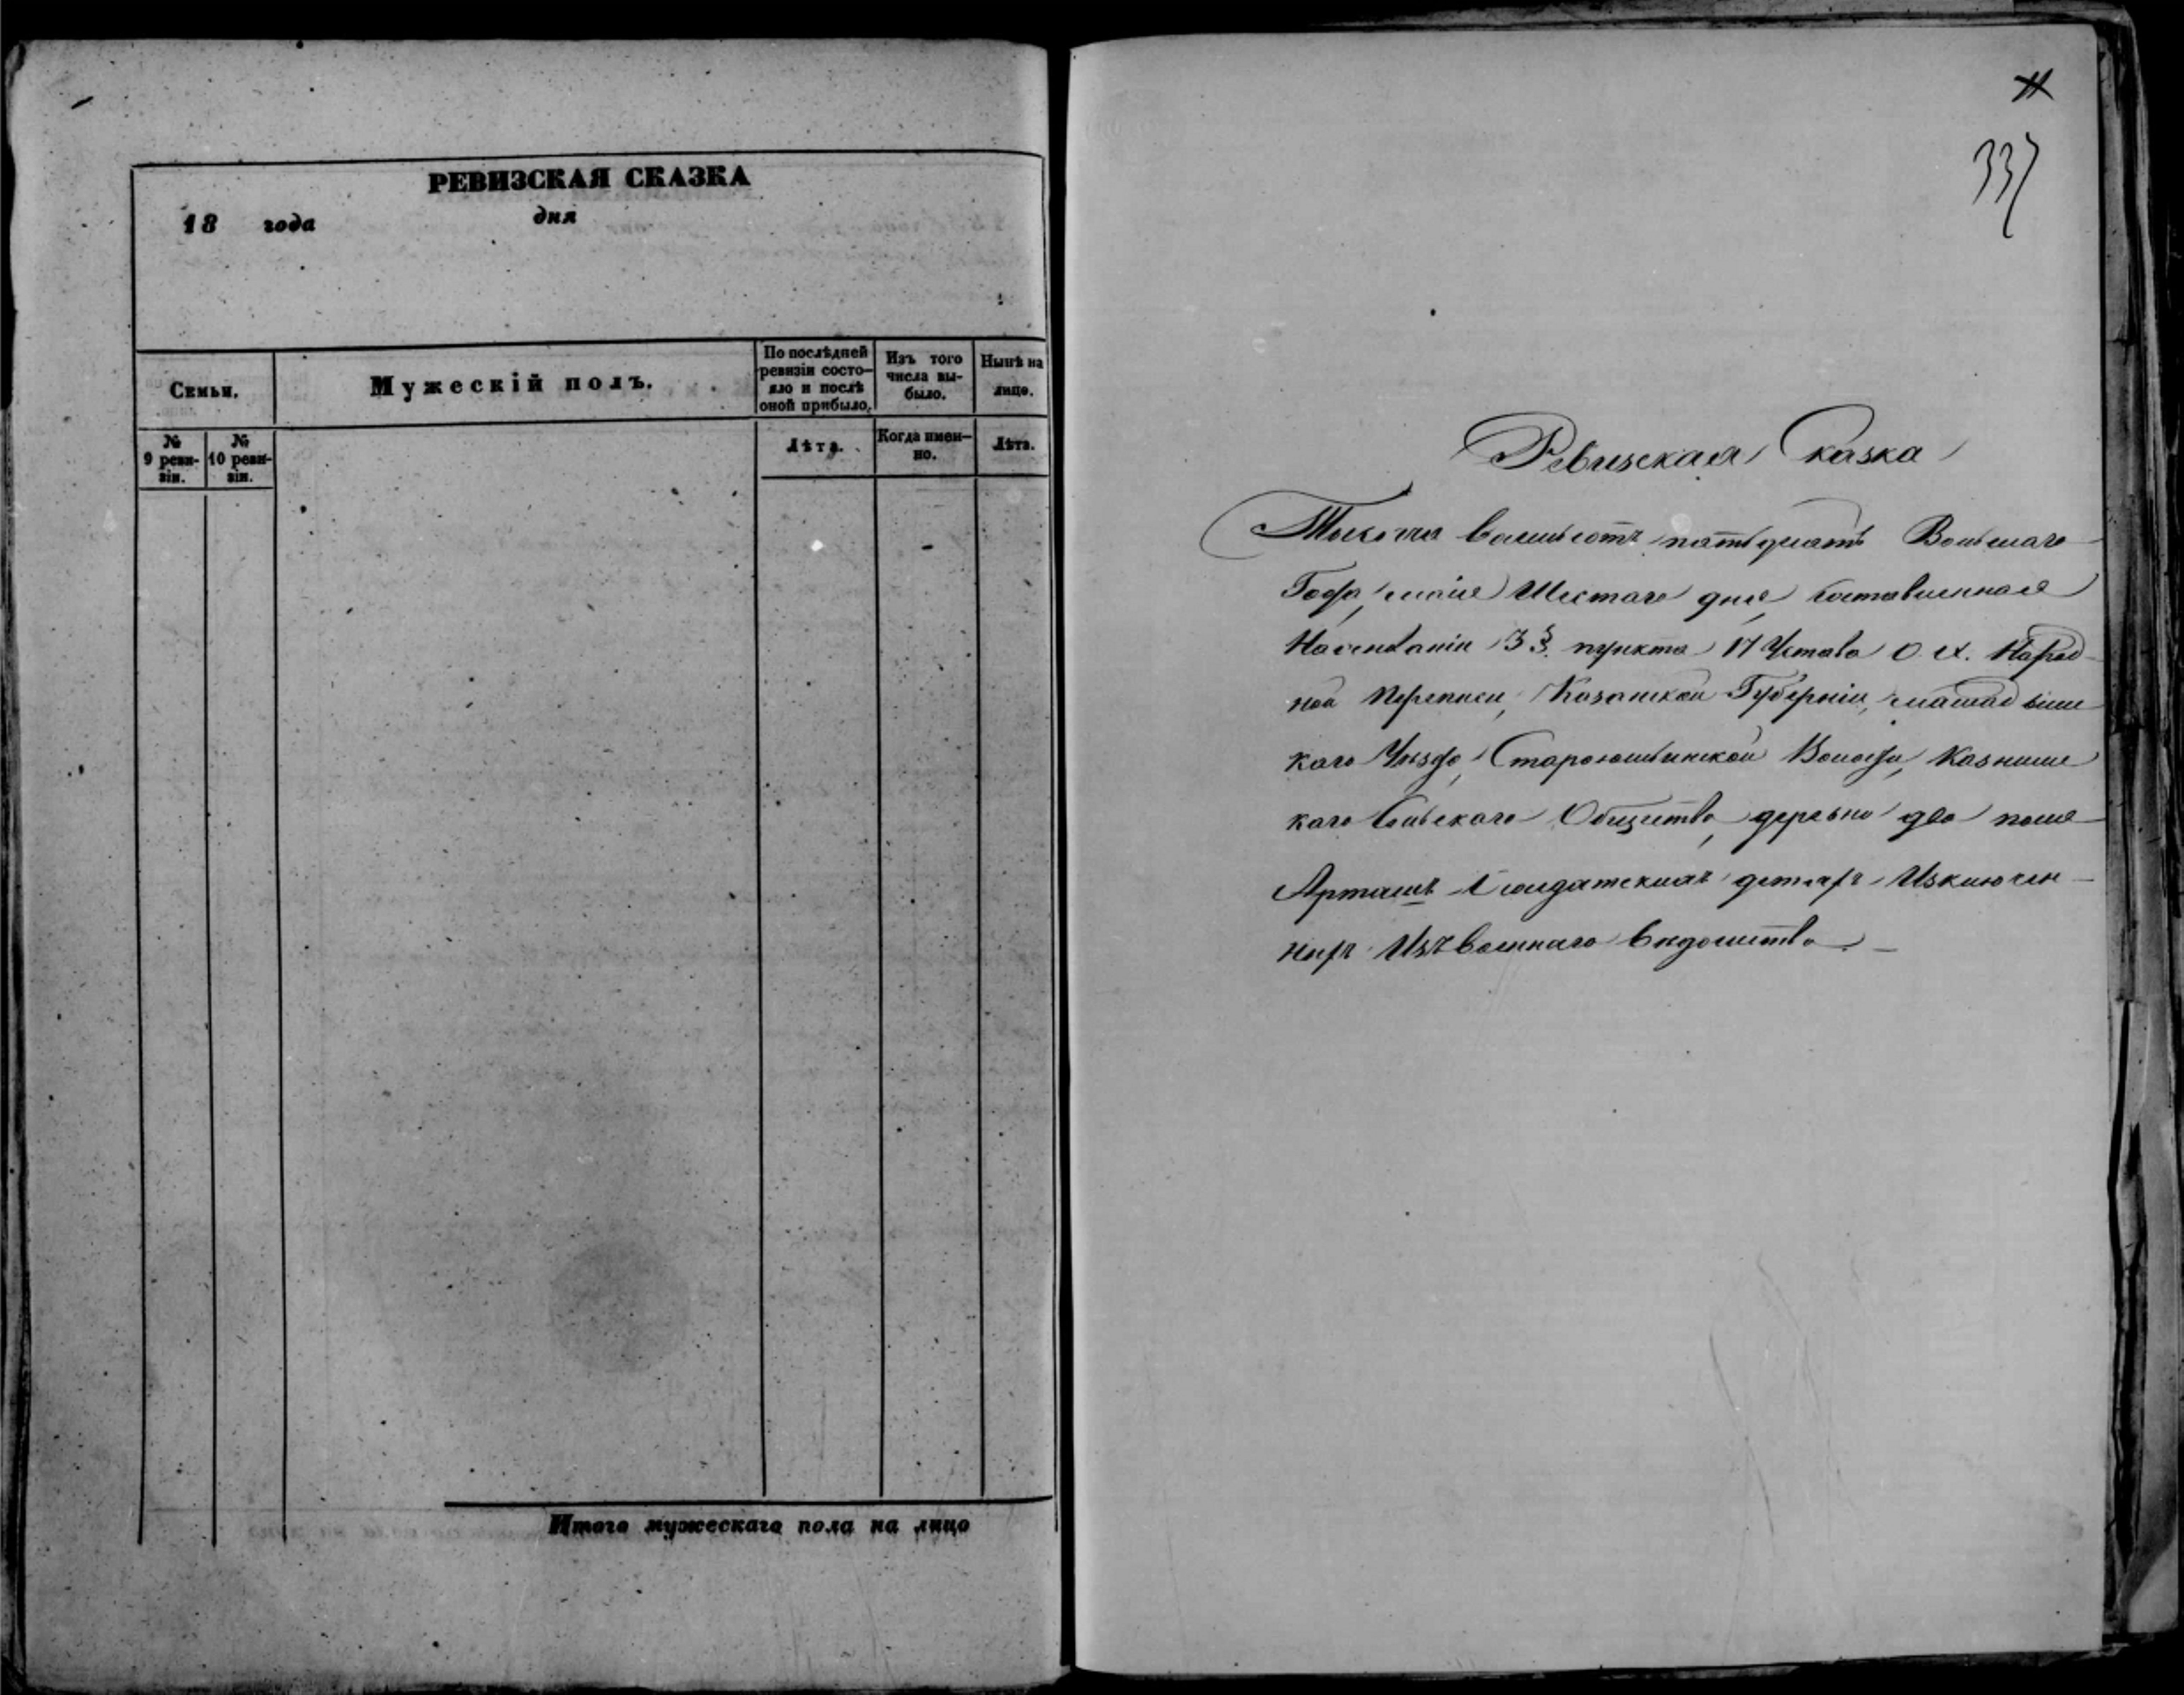 РЕВИЗСКАЯ СКАЗКА
18 года дня
Семьи.
Мужескій полъ.
По послѣдней ревизіи состо-
яло и послѣ
оной прибыло.
Изъ того
числа вы-
было.
Нынѣ на
лицо.
№
9 реви-
зіи.
№
10 реви-
зіи.
Лѣта.
Когда имен-
но.
Лѣта.
Итого мужескаго пола на лицо
337
Ревизская Сказка
Тысяча восемьсотъ пятьдесятъ Восьмаго
Года, маія Шестаго дня, составленная
На основаніи 3 §. пункта 17 Устава о Х. Народ-
ной Переписи, Казанской Губерніи, мамадышс
каго Уѣзда, Староюмьинской Волости,
каго Сельскаго Общества, деревни два поля
Арташъ Солдатскихъ детяхъ Изключен-
ныхъ Изъ военнаго вѣдомства. —